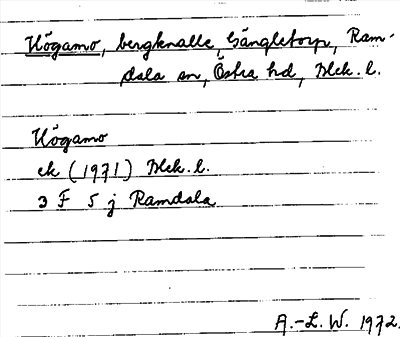 Högamo, bergknalle, Gängletorp, Ram-
dala sn, Östra hd, Blek. l.
Högamo
ek (1971) Blek. l.
3 F 5 j Ramdala
A.-L. W. 1972.